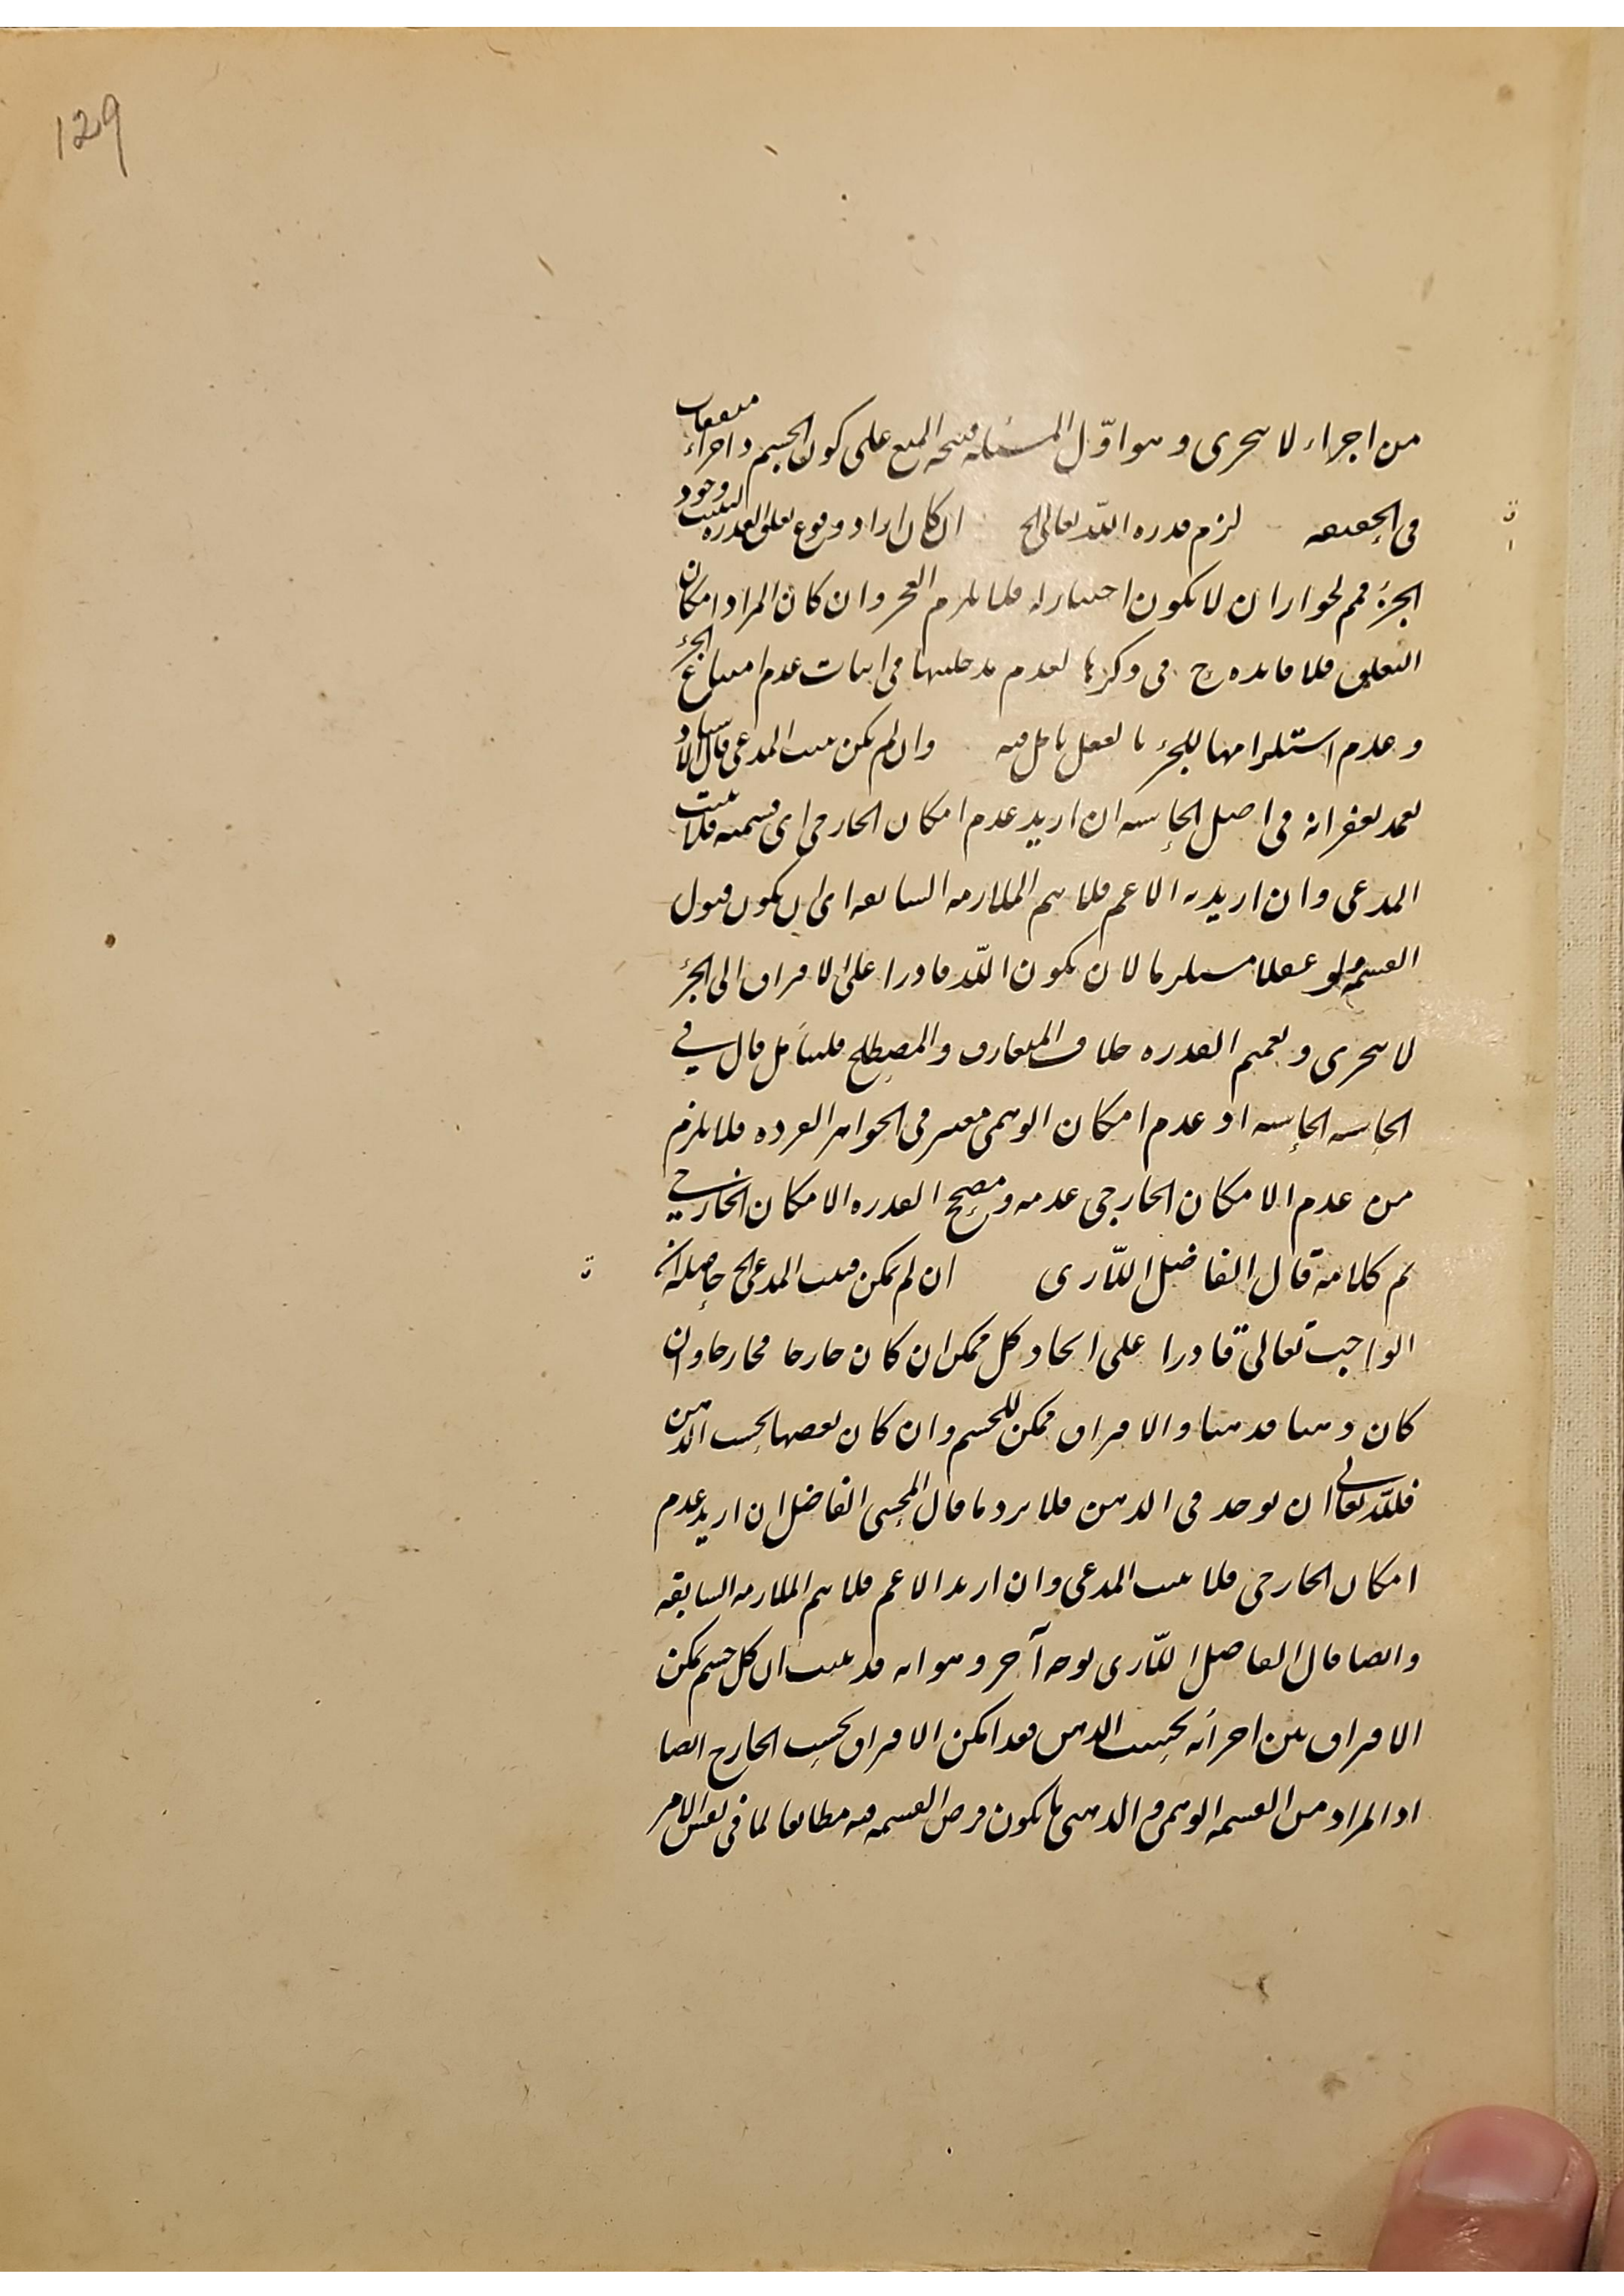 129
من اجزاء لا يتجزى وهو اوّل المسئله فيتجه المنع على كون الجسم ذا اجزاء
في الحقيقه لزم قدرة اللّه تعالى الخ ان كان اراد وقوع تعلق القدره وجود
الجزء فمم لجواز ان لا يكون اختيار له فلا يلزم العجز وان كان المراد امكان
التعلق فلا فائده ح في ذكرها لعدم مدخليتها في اثبات عدم امتناع الجزء
وعدم استلزامها للجزء بالفعل تامل فيه وان لم يكن يثبت المدعى قال الاستاد
في اصل الحاشيه ان اريد عدم امكان الخارجي اي قسمته فلا يثبت
المدعى وان اريد به الاعم فلا يتم الملازمه السابقه اي ان يكون قبول
القسمه ولو عقلا مستلزما لان يكون اللّه قادرا على الافتراق الى الجزء
لا يتجزى وتعميم القدره خلاف المتعارف والمصطلح فليتامل قال في
الحاشيه الحاشيه اذ عدم امكان الوهمي معتبر في الجواهر الفرده فلا يلزم
من عدم الامكان الخارجي عدمه ومصحح القدره الامكان الخارجي
تم كلامه قال الفاضل اللّاري ان لم يكن يثبت المدعى الخ حاصله انه
الواجب تعالى قادرا على ايجاد كل ممكن ان كان خارجا فخارجا وان
كان ذهنا فذهنا والافتراق ممكن للجسم وان كان بعضها بحسب الذهن
فللّه تعالى ان يوجد في الذهن فلا يرد ما قال المحشي الفاضل ان اريد عدم
امكان الخارجي فلا يثبت المدعى وان اريد الاعم فلا يتم الملازمه السابقه
وايضا قال الفاضل اللّاري بوجه آخر وهو انه قد يثبت ان كل جسم يمكن
الافتراق بين اجزائه بحسب الذهن فقد امكن الافتراق بحسب الخارج ايضا
اذ المراد من القسمه الوهمي والذهني ما يكون فرض القسمه فيه مطابقا لما في نفس الامر